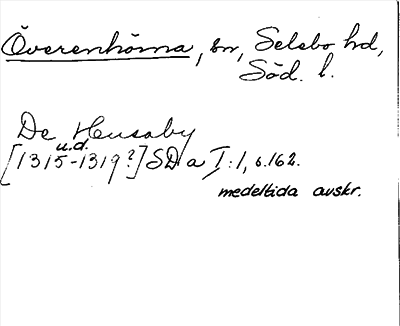 Överenhörna, sn, Selebo hd,
Söd. l.
De Husaby
u.d.
[1315-1319?] SD a I:1, s.162.
medeltida avskr.